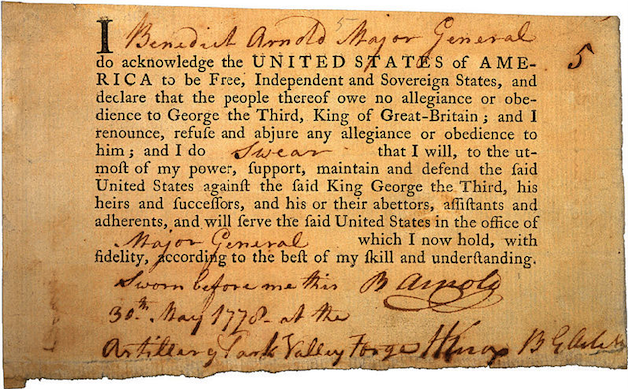 I Benedict Arnold Major General
5
do acknowledge the UNITED STATES of AME-
RICA to be Free, Independent and Sovereign States, and
declare that the people thereof owe no allegiance or obe-
dience to George the Third, King of Great-Britain; and I
renounce, refuſe and abjure any allegiance or obedience to
him; and I do Swear that I will, to the ut-
moſt of my power, ſupport, maintain and defend the ſaid
United States againſt the ſaid King George the Third, his
heirs and ſucceſſors, and his or their abettors, aſſiſtants and
adherents, and will ſerve the ſaid United States in the office of
Major General which I now hold, with
fidelity, according to the beſt of my ſkill and underſtanding.
Sworn before me this B Arnold
30th May 1778 at the
Artillery Park Valley Forge HKnox B G Artil